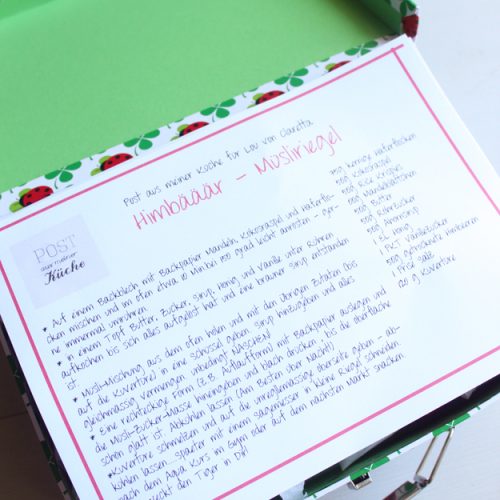 Post aus meiner Küche für Lou von Claretta
Himbääär - Müsliriegel
POST
aus meiner
Küche
kernige Haferflocken
Kokosraspel
Rice Krispies
Mandelblättchen
Butter
Rohrzucker
Ahornsirup
1 EL Honig
1 PKT Vanillezucker
getrocknete Himbeeren
1 Prise Salz
g Kuvertüre
* Auf einem Backblech mit Backpapier Mandeln, Kokosraspel und Haferflo-
cken mischen und im Ofen etwa 10 Min bei 150 grad leicht anrösten - ger-
ne immermal umrühren
* In einem Topf Butter, Zucker, Sirup, Honig und Vanille unter Rühren
aufkochen bis sich alles aufgelöst hat und eine brauner Sirup entstanden
ist
* Müsli-Mischung aus dem Ofen holen und mit den übrigen Zutaten (bis
auf die Kuvertüre) in eine Schüssel geben. Sirup hinzugeben und alles
gleichmässig vermengen unbedingt NASCHEN!
* Eine rechteckige Form (z.B. Auflaufform) mit Backpapier auslegen und
die Müsli-Zucker-Masse hineingeben und flach drücken, bis die Oberfläche
schön glatt ist. Abkühlen lassen (Am Besten über Nacht)
* Kuvertüre schmelzen und auf die unregelmässige Oberseite geben - ab-
kühlen lassen. Später mit einem Sägemesser in kleine Riegel schneiden.
nach dem Aqua Kurs im Gym oder auf dem nächsten Markt snacken.
weckt den Tiger in Dir!